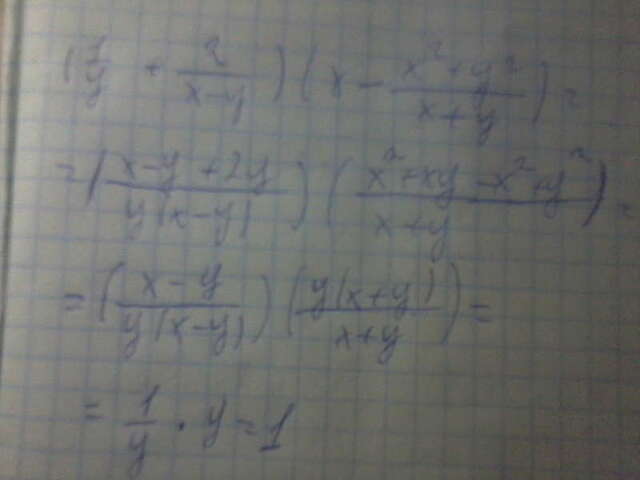 (1/y + 2/(x-y)) (x - (x²+y²)/(x+y)) =
= ((x-y+2y)/(y(x-y))) ((x²+xy-x²+y²)/(x+y)) =
= ((x-y)/(y(x-y))) (y(x+y)/(x+y)) =
= 1/y · y = 1